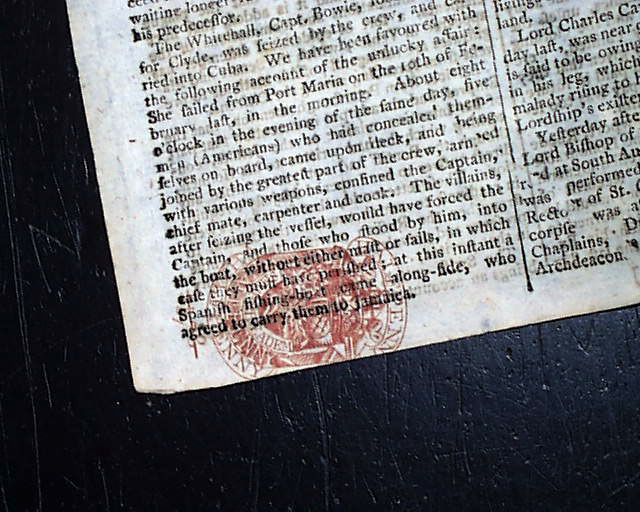 waiting longer
his predeceſſor.
The Whitehall, Capt. Bowie,
for Clyde, was ſeized by the crew, and
ried into Cuba. We have been favoured with
the following account of the unlucky affair:
She ſailed from Port Maria on the 10th of Fe-
bruary laſt, in the morning. About eight
o'clock in the evening of the ſame day, five
men (Americans) who had concealed them-
ſelves on board, came upon deck, and being
joined by the greateſt part of the crew, armed
with various weapons, confined the Captain,
chief mate, carpenter and cook. The villains,
after ſeizing the veſſel, would have forced the
Captain, and thoſe who ſtood by him, into
the boat, without either maſt or ſails, in which
caſe they muſt have periſhed; at this inſtant a
Spaniſh fiſhing-boat came along-ſide, who
agreed to carry them to Jamaica.
livings
land,
Lord Charles
day laſt, was near
is ſaid to be owin
in his leg, which
malady riſing to
Lordſhip's exiſte
Yeſterday afte
Lord Biſhop of
at South Au
was performe
Rector of St.
corpſe was
Chaplains,
Archdeacon